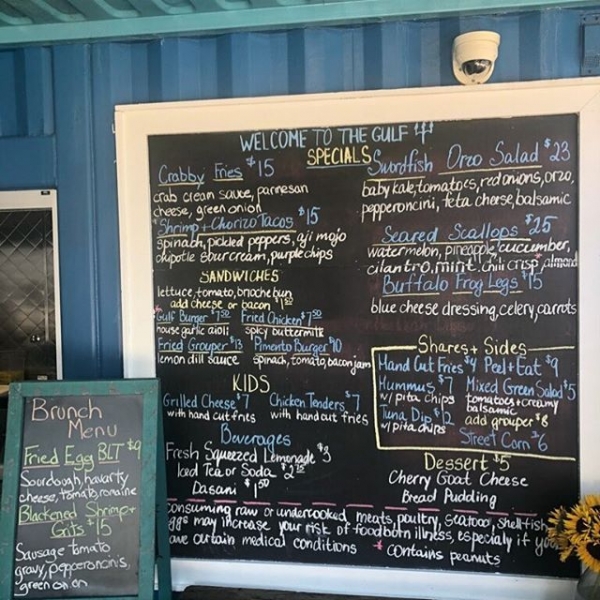 WELCOME TO THE GULF
SPECIALS
Crabby Fries $15
crab cream sauce, parmesan
cheese, green onion
Shrimp + Chorizo Tacos $15
spinach, pickled peppers, aji mojo
chipotle sour cream, purple chips
SANDWICHES
lettuce, tomato, brioche bun
add cheese or bacon $1.50
*Gulf Burger $7.50 Fried Chicken $7.50
house garlic aioli spicy buttermilk
Fried Grouper $13 Pimento Burger $10
lemon dill sauce spinach, tomato, bacon jam
KIDS
Grilled Cheese $7 Chicken Tenders $7
with hand cut fries with hand cut fries
Beverages
Fresh Squeezed Lemonade $3
Iced Tea or Soda $2.75
Dasani $1.50
Swordfish Orzo Salad $23
baby kale, tomatoes, red onions, orzo,
pepperoncini, feta cheese, balsamic
Seared Scallops $25
watermelon, pineapple, cucumber,
cilantro, mint, chili crisp, almond
Buffalo Frog Legs $15
blue cheese dressing, celery, carrots
Shares + Sides
Hand Cut Fries $4 Peel + Eat $9
Hummus $7 Mixed Green Salad $5
w/ pita chips tomatoes + creamy
balsamic
Tuna Dip $12 add grouper $8
w/ pita chips
Street Corn $6
Dessert $5
Cherry Goat Cheese
Bread Pudding
consuming raw or undercooked meats, poultry, seafood, shellfish
eggs may increase your risk of foodborn illness, especialy if you
have certain medical conditions * contains peanuts
Brunch
Menu
Fried Egg BLT $9
Sourdough, havarty
cheese, tomato, romaine
Blackened Shrimp +
Grits $15
Sausage tomato
gravy, pepperoncinis,
green onion